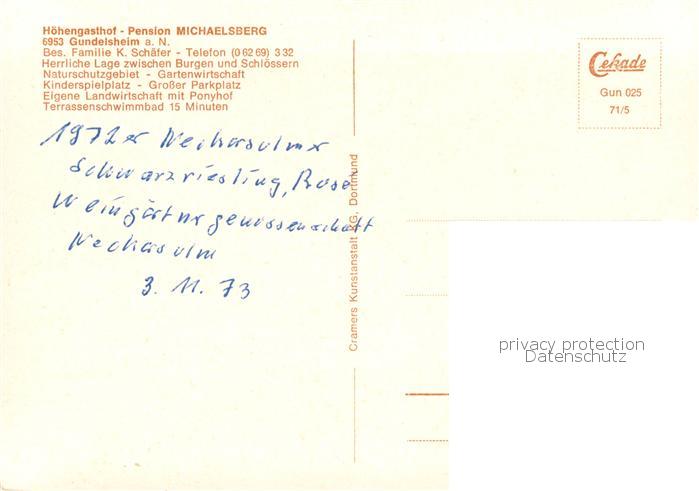 Höhengasthof - Pension MICHAELSBERG
6953 Gundelsheim a. N.
Bes. Familie K. Schäfer - Telefon (0 62 69) 3 32
Herrliche Lage zwischen Burgen und Schlössern
Naturschutzgebiet - Gartenwirtschaft
Kinderspielplatz - Großer Parkplatz
Eigene Landwirtschaft mit Ponyhof
Terrassenschwimmbad 15 Minuten
1972er Neckarsulmer
Schwarzriesling, Rosé
Weingärtnergenossenschaft
Neckarsulm
3. 11. 73
Cramers Kunstanstalt KG, Dortmund
Cekade
Gun 025
71/5
privacy protection
Datenschutz